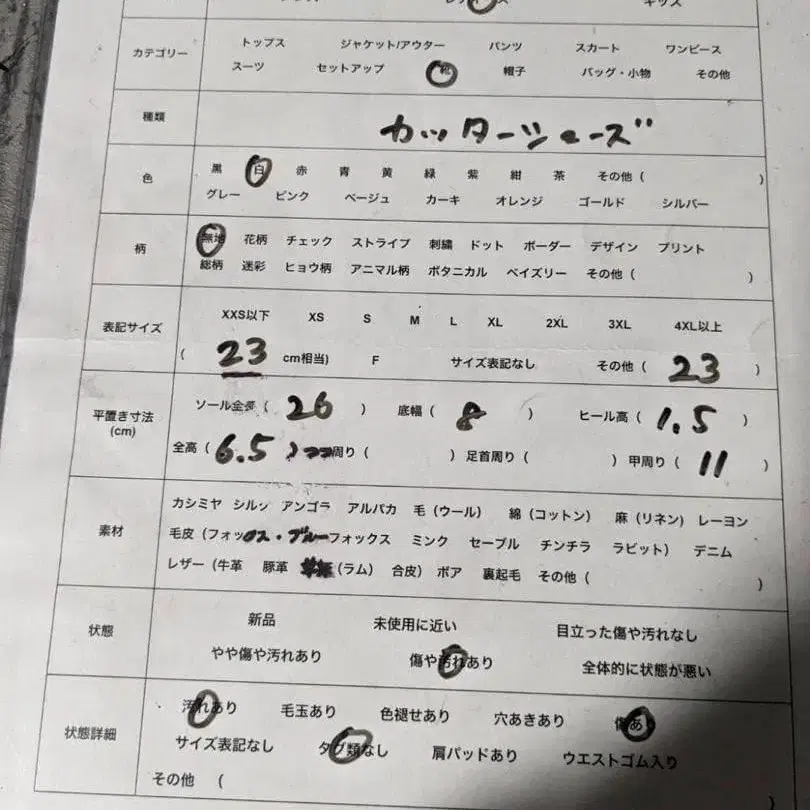 レディース キッズ
カテゴリー
トップス ジャケット/アウター パンツ スカート ワンピース
スーツ セットアップ 靴 帽子 バッグ・小物 その他
種類 カッターシューズ
色
黒 白 赤 青 黄 緑 紫 紺 茶 その他 ( )
グレー ピンク ベージュ カーキ オレンジ ゴールド シルバー
柄
無地 花柄 チェック ストライプ 刺繍 ドット ボーダー デザイン プリント
総柄 迷彩 ヒョウ柄 アニマル柄 ボタニカル ペイズリー その他 ( )
表記サイズ
XXS以下 XS S M L XL 2XL 3XL 4XL以上
( 23 cm相当) F サイズ表記なし その他 ( 23 )
平置き寸法
(cm)
ソール全長 ( 26 ) 底幅 ( 8 ) ヒール高 ( 1.5 )
全高 ( 6.5 ) 周り ( ) 足首周り ( ) 甲周り ( 11 )
素材
カシミヤ シルク アンゴラ アルパカ 毛 (ウール) 綿 (コットン) 麻 (リネン) レーヨン
毛皮 (フォックス・ブルーフォックス ミンク セーブル チンチラ ラビット) デニム
レザー (牛革 豚革 (ラム) 合皮) ボア 裏起毛 その他 ( )
状態
新品 未使用に近い 目立った傷や汚れなし
やや傷や汚れあり 傷や汚れあり 全体的に状態が悪い
状態詳細
汚れあり 毛玉あり 色褪せあり 穴あきあり 傷あり
サイズ表記なし タグ類なし 肩パッドあり ウエストゴム入り
その他 ( )